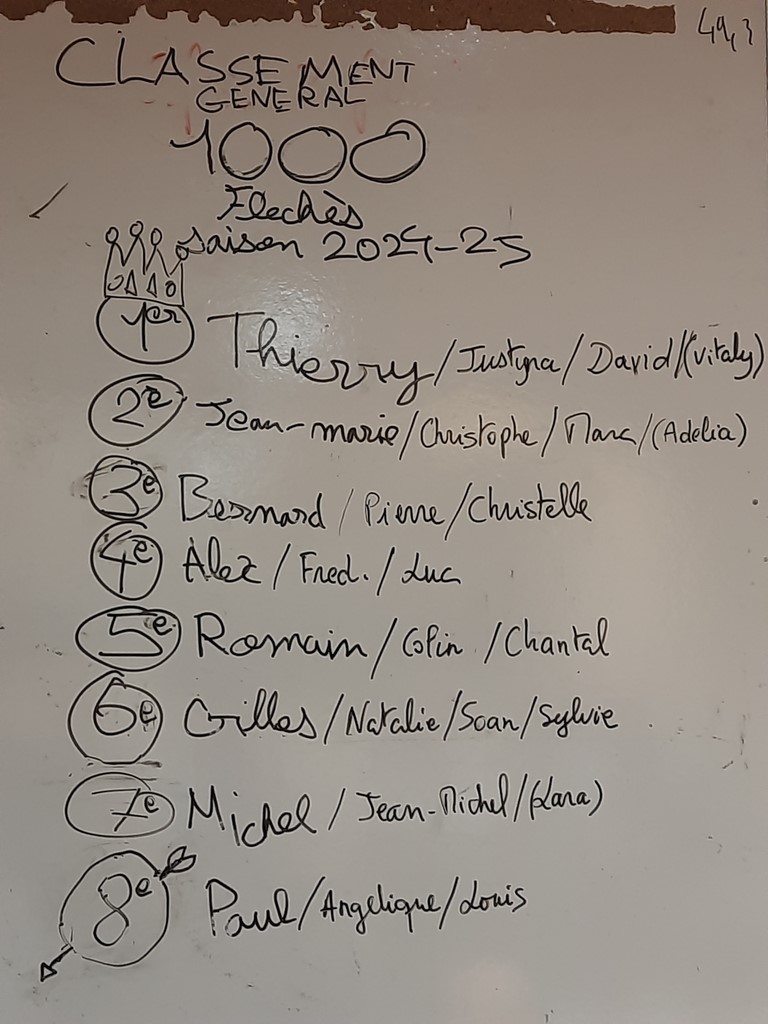 49,3
CLASSEMENT
GENERAL
1000
Flechès
saison 2024-25
1er Thierry/Justyna/David/(Vitaly)
2e Jean-marie/Christophe/Marc/(Adelia)
3e Bernard/Pierre/Christelle
4e Alex/Fred./Luc
5e Romain/Colin/Chantal
6e Gilles/Natalie/Soan/Sylvie
7e Michel/Jean-Michel/(Lana)
8e Paul/Angelique/Louis